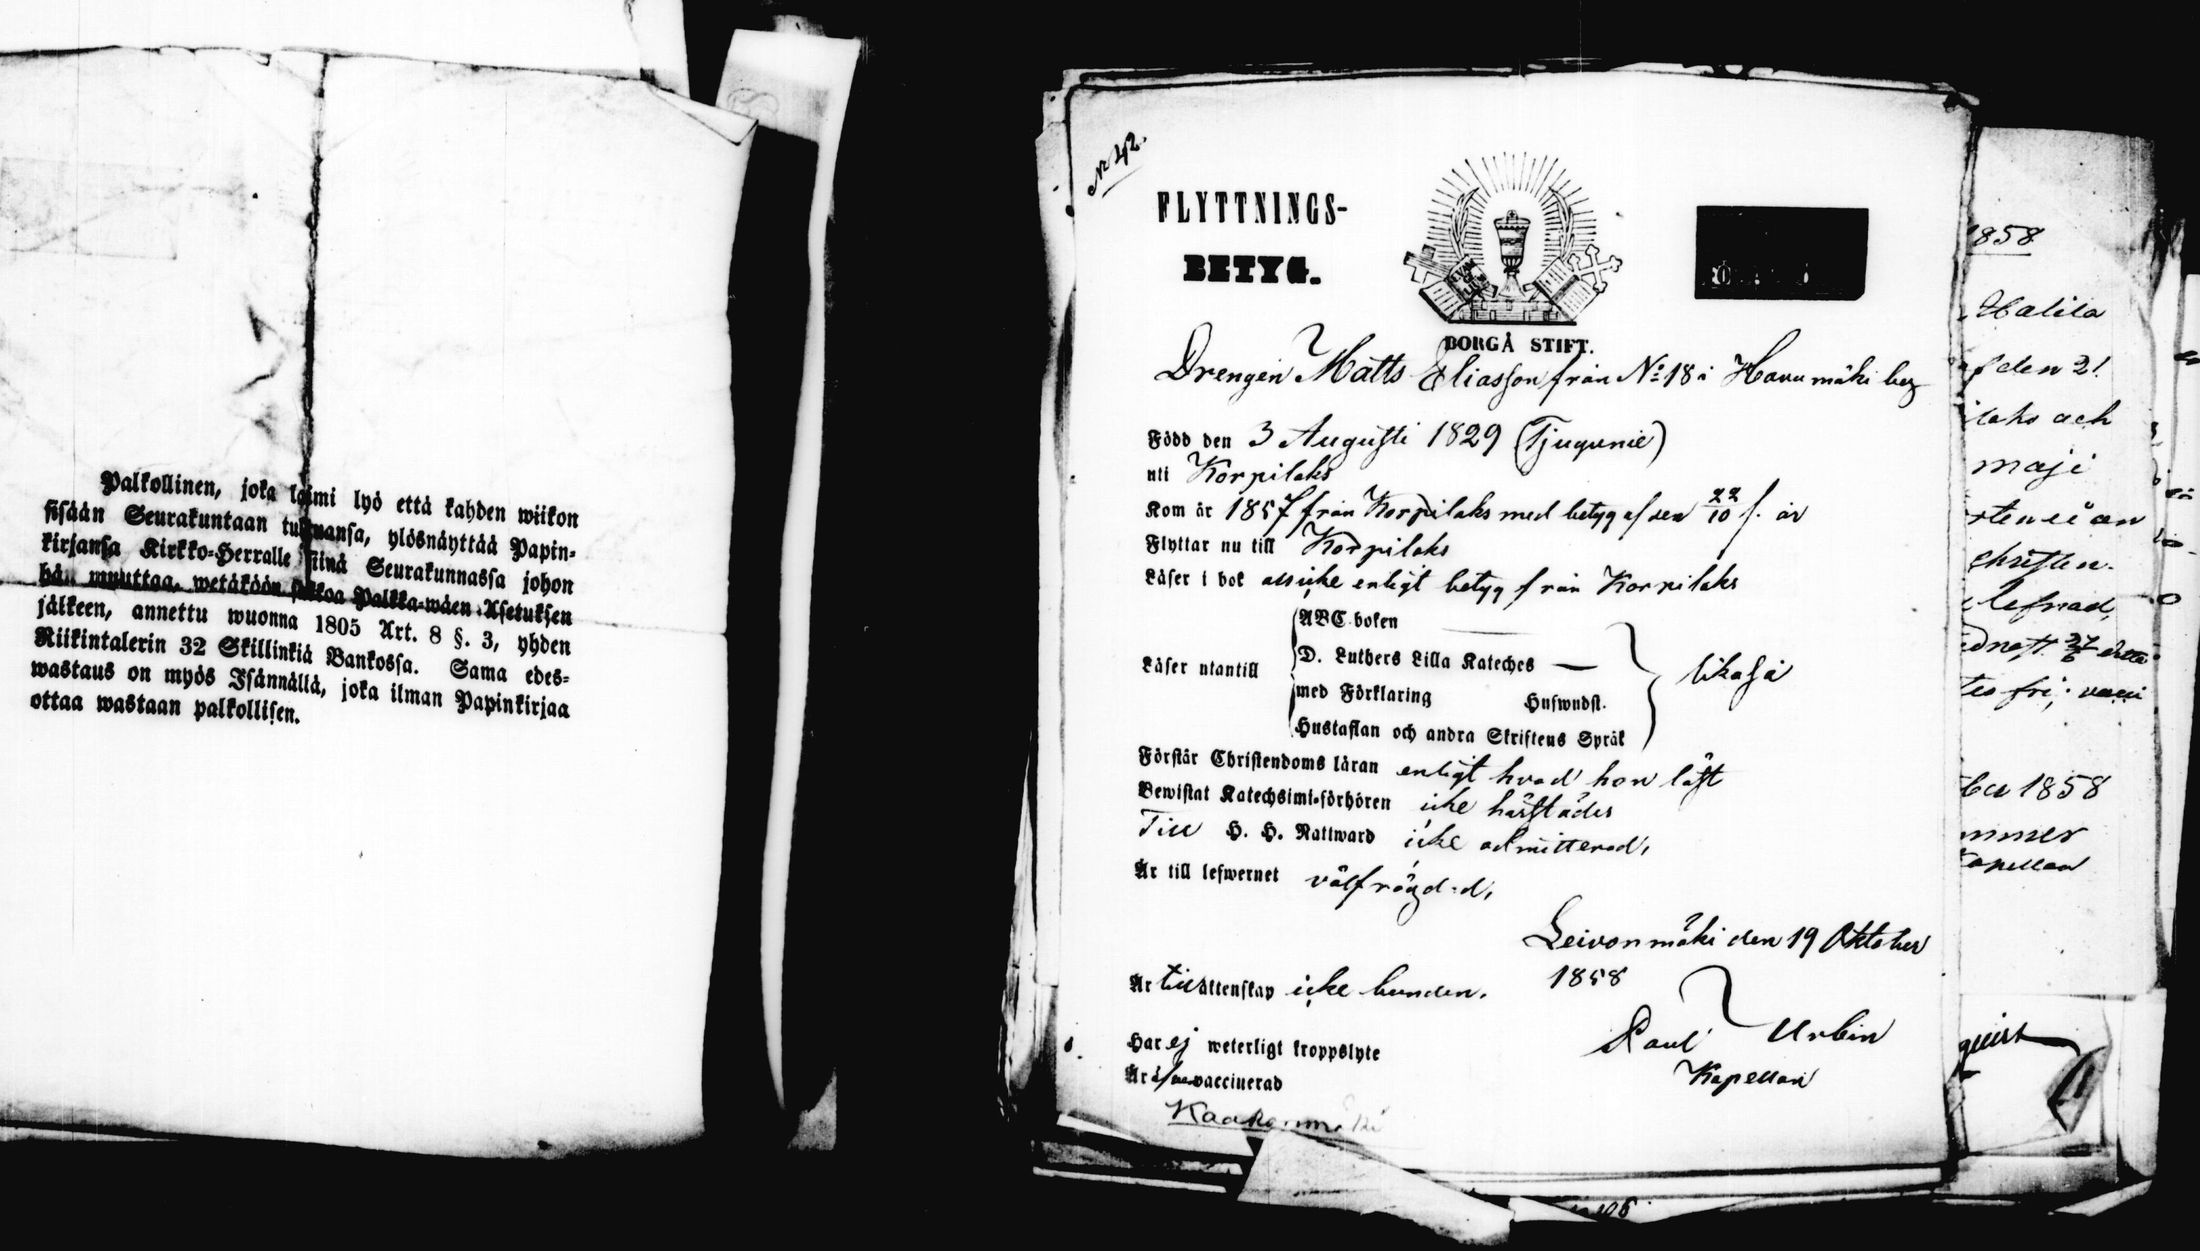 Palkollinen, joka laimi lyö että kahden wiikon
sisään Seurakuntaan tultuansa, ylösnäyttää Papin-
kirjansa Kirkko-Herralle siinä Seurakunnassa johon
hän muuttaa, wetäköön sakkoa Palkka-wäen Asetuksen
jälkeen, annettu wuonna 1805 Art. 8 §. 3, yhden
Riikintalerin 32 Skillinkiä Bankossa. Sama edes-
wastaus on myös Isännällä, joka ilman Papinkirjaa
ottaa wastaan palkollisen.
No 42.
FLYTTNINGS-
BETYG.
BORGÅ STIFT.
Drengen Matts Eliasson från No 18 i Havumäki by
Född den 3 Augusti 1829 (Tjugunie)
uti Korpilaks
Kom år 1857 från Korpilaks med betyg af den 22/10 s. år
Flyttar nu till Korpilaks
Läser i bok alls icke enligt betyg från Korpilaks
Läser utantill
ABC-boken
D. Luthers Lilla Kateches —
med Förklaring Huswudst.
Hustaflan och andra Skriftens Språk
likaså
Förstår Christendoms läran enligt hvad hon läst
Bewistat Katechismi-förhören icke härstädes
Till H. H. Nattward icke admitterad,
Är till lefwernet välfrägdad,
Leivonmäki den 19 Oktober
1858
Är till äktenskap icke bunden.
Paul Urbin
Kapellan
Har ej weterligt kroppslyte
Är vaccinerad
1858
Halila
af den 21
och
maji
christen-
lefnad,
fri;
1858
Kapellan